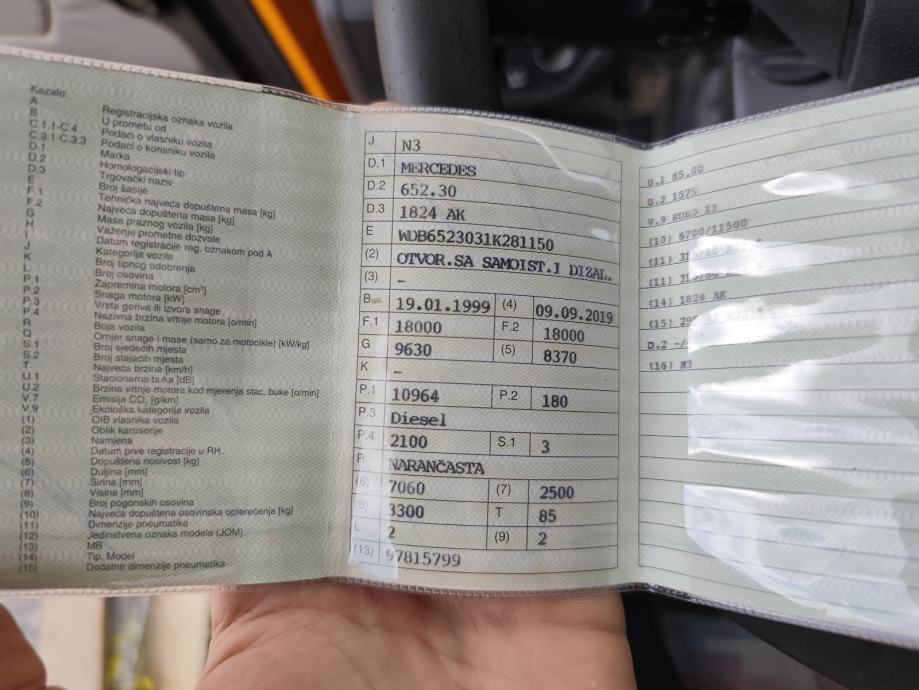 Kazalo:
A Registracijska oznaka vozila
B U prometu od
C.1.1-C.4 Podaci o vlasniku vozila
C.3.1-C.3.3 Podaci o korisniku vozila
D.1 Marka
D.2 Homologacijski tip
D.3 Trgovački naziv
E Broj šasije
F.1 Tehnička najveća dopuštena masa [kg]
F.2 Najveća dopuštena masa [kg]
G Masa praznog vozila [kg]
H Važenje prometne dozvole
I Datum registracije reg. oznakom pod A
J Kategorija vozila
K Broj tipnog odobrenja
L Broj osovina
P.1 Zapremina motora [cm³]
P.2 Snaga motora [kW]
P.3 Vrsta goriva ili izvora snage
P.4 Nazivna brzina vrtnje motora [o/min]
R Boja vozila
Q Omjer snage i mase (samo za motocikle) [kW/kg]
S.1 Broj sjedećih mjesta
S.2 Broj stajaćih mjesta
T Najveća brzina [km/h]
U.1 Stacionarna buka [dB]
U.2 Brzina vrtnje motora kod mjerenja stac. buke [o/min]
V.7 Emisija CO₂ [g/km]
V.9 Ekološka kategorija vozila
(1) OIB vlasnika vozila
(2) Oblik karoserije
(3) Namjena
(4) Datum prve registracije u RH
(5) Dopuštena nosivost [kg]
(6) Duljina [mm]
(7) Širina [mm]
(8) Visina [mm]
(9) Broj pogonskih osovina
(10) Najveća dopuštena osovinska opterećenja [kg]
(11) Dimenzije pneumatika
(12) Jedinstvena oznaka modela (JOM)
(13) MB
(14) Tip, Model
(15) Dodatne dimenzije pneumatika
J N3
D.1 MERCEDES
D.2 652.30
D.3 1824 AK
E WDB6523031K281150
(2) OTVOR.SA SAMOIST.I DIZAL.
(3) –
B 19.01.1999 (4) 09.09.2019
F.1 18000 F.2 18000
G 9630 (5) 8370
K –
P.1 10964 P.2 180
P.3 Diesel
P.4 2100 S.1 3
R NARANČASTA
(6) 7060 (7) 2500
(8) 3300 T 85
L 2 (9) 2
(13) 97815799
U.1 85,00
U.2 1575
V.9 EURO II
(10) 6700/11500
(11)
(11)
(14) 1824 AK
(15)
D.2 -/
(16) N3